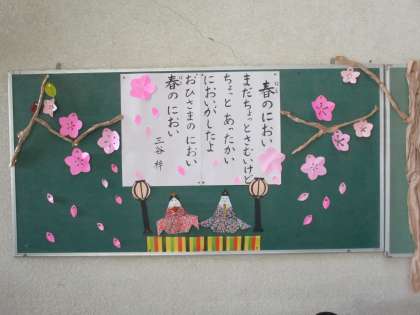 春のにおい
まだちょっとさむいけど
ちょっと あったかい
においがしたよ
おひさまのにおい
春の におい
三谷 梓